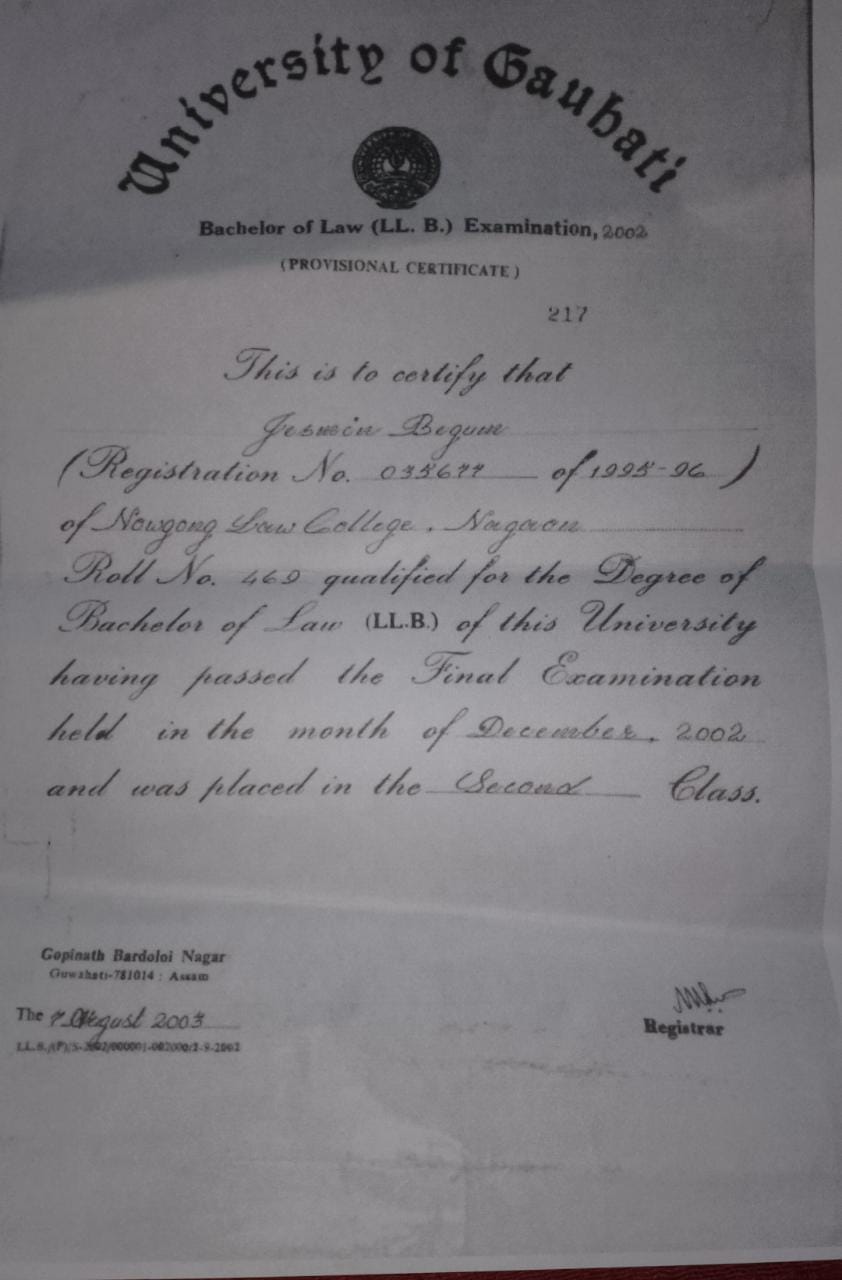 University of Gauhati
Bachelor of Law (LL. B.) Examination, 2002
(PROVISIONAL CERTIFICATE)
217
This is to certify that
Jesmin Begum
(Registration No. 035677 of 1995-96)
of Nowgong Law College, Nagaon
Roll No. 469 qualified for the Degree of
Bachelor of Law (LL.B.) of this University
having passed the Final Examination
held in the month of December, 2002
and was placed in the Second Class.
Gopinath Bardoloi Nagar
Guwahati-781014 : Assam
The 7 August 2003
Registrar
LL.B./(P)/S-2002/000001-002000/2-9-2002